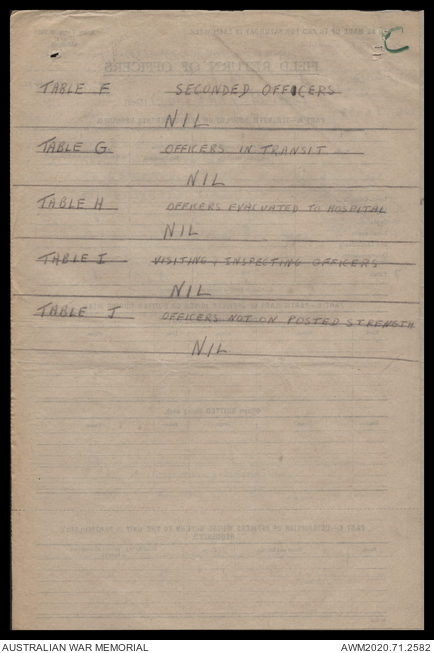 C
TABLE F SECONDED OFFICERS
NIL
TABLE G OFFICERS IN TRANSIT
NIL
TABLE H OFFICERS EVACUATED TO HOSPITAL
NIL
TABLE I VISITING, INSPECTING OFFICERS
NIL
TABLE J OFFICERS NOT ON POSTED STRENGTH
NIL
AUSTRALIAN WAR MEMORIAL AWM2020.71.2582